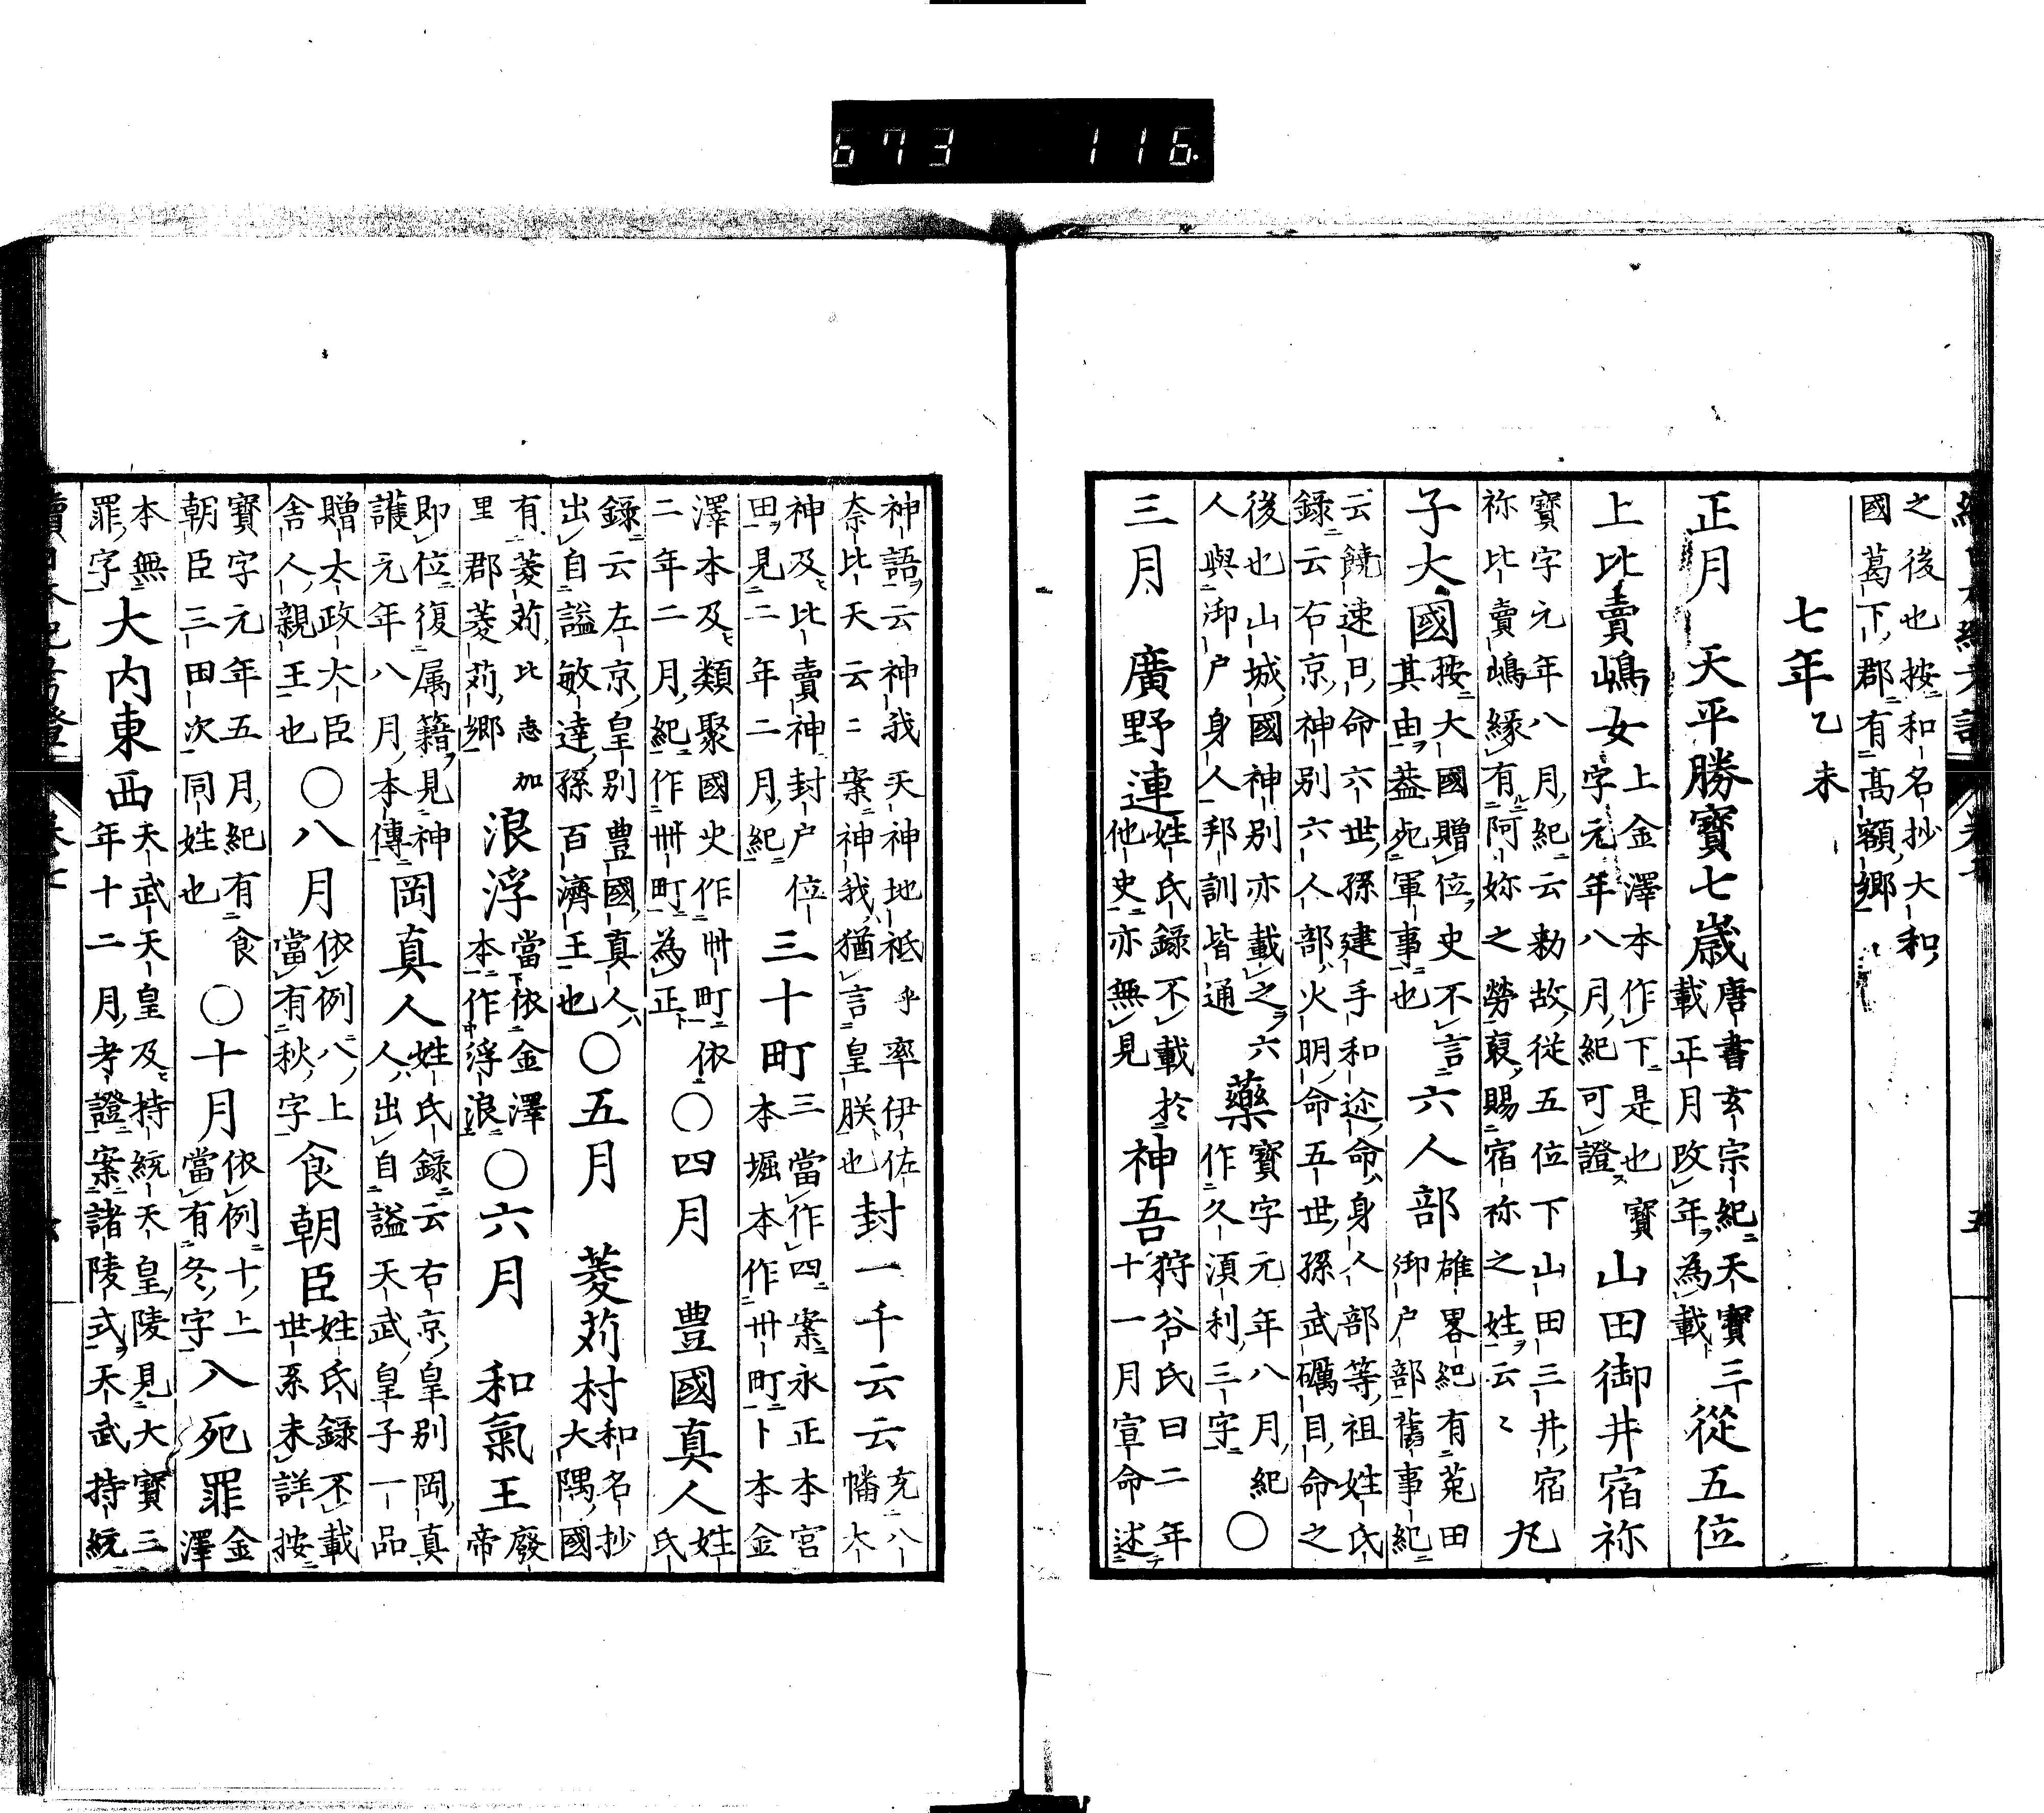 673 116.
之後也按和名抄大和
國葛下郡有髙額郷
七年乙未
正月 天平勝寶七歳唐書玄宗紀天寶三載正月改年為載從五位
上比賣嶋女上金澤本作下是也寶字元年八月紀可證山田御井宿祢
寶字元年八月紀云勅故從五位下山田三井宿祢比賣嶋縁有阿妳之勞裒賜宿祢之姓云々凡
子大國按大國贈位史不言其由葢死軍事也六人部雄畧紀有菟田御户部舊事紀
云饒速日命六世孫建手和迩命身人部等祖姓氏録云右京神別六人部火明命五世孫武礪目命之
後也山城國神別亦載之六人與御户身人邦訓皆通藥寶字元年八月紀作久湏利三字○
三月 廣野連姓氏録不載於他史亦無見神吾狩谷氏曰二年十一月宣命述
神語云神我天神地祇乎率伊佐奈比天云二案神我猶言皇朕也封一千云云充八幡大
神及比賣神封户位田見二年二月紀三十町三當作四案永正本宮本堀本作卌町卜本金
澤本及類聚國史作卌町依二年二月紀作卌町為正○四月 豊國真人姓氏
録云左京皇別豊國真人出自謚敏達孫百濟王也○五月 菱苅村和名抄大隅國
有菱苅比志加里郡菱苅郷浪浮當依金澤本作浮浪○六月 和氣王廢帝
即位復属籍見神護元年八月本傳岡真人姓氏録云右京皇別岡真人出自謚天武皇子一品
贈太政大臣舎人親王也○八月依例八上當有秋字食朝臣姓氏録不載世系未詳按
寶字元年五月紀有食朝臣三田次同姓也○十月依例十上當有冬字八死罪金澤
本無罪字大内東西天武天皇及持統天皇陵見大寶三年十二月考證案諸陵式天武持統